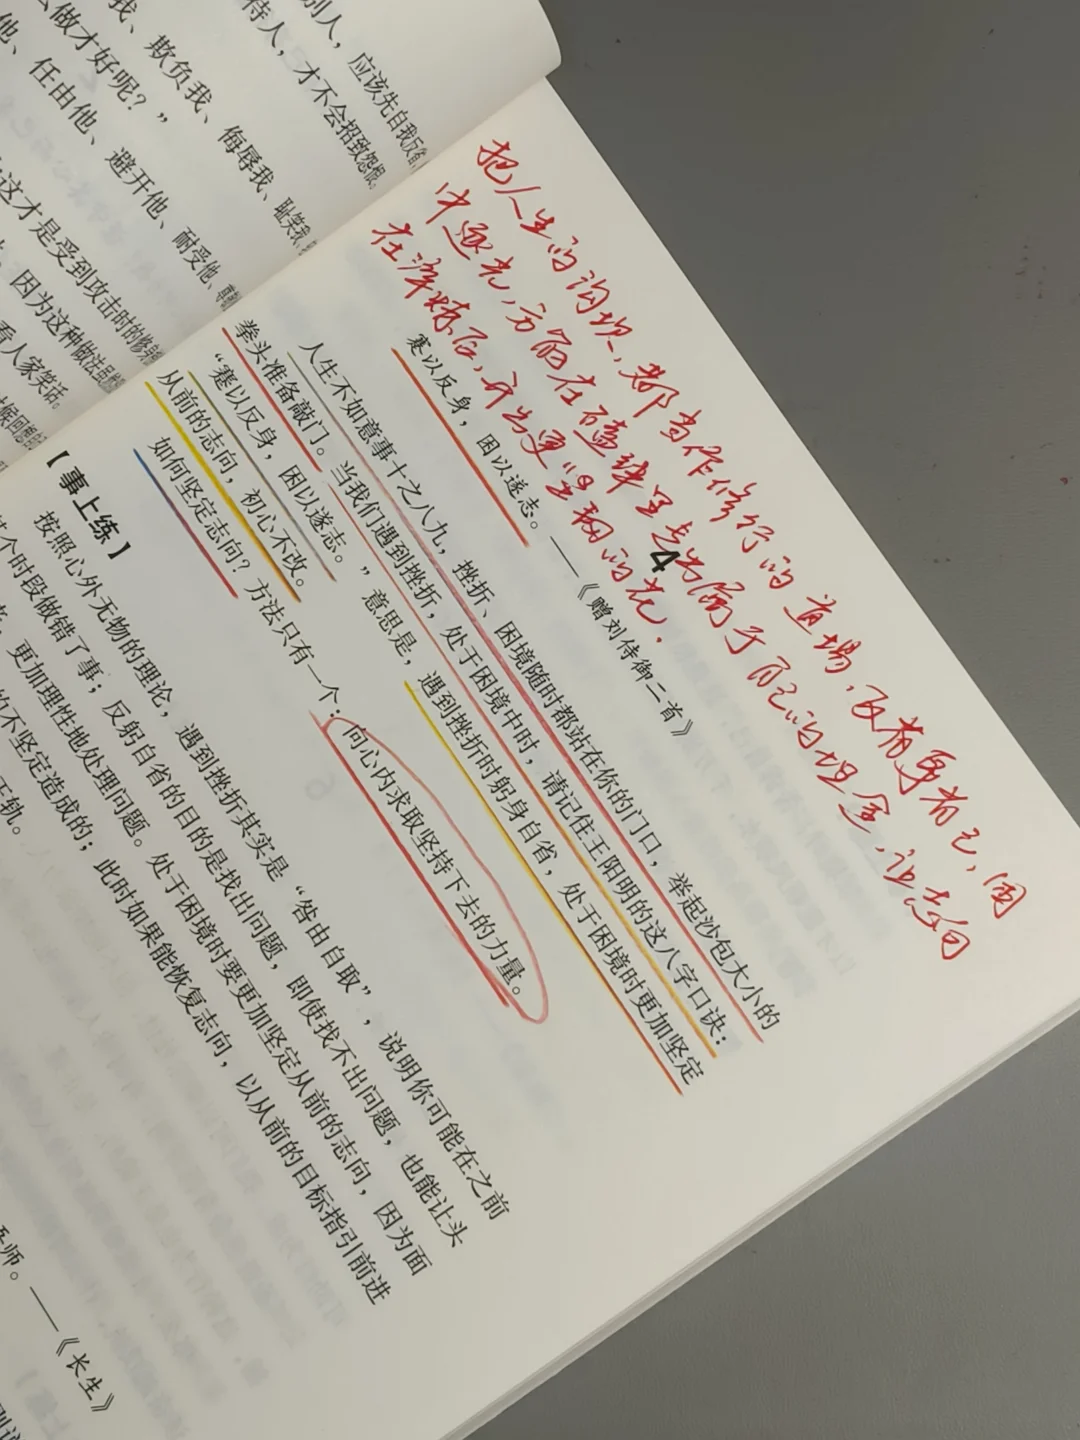 别人，应该先自我反省，
待人，才不会招致怨恨。
我、欺负我、侮辱我、耻笑我、
么做才好呢？”
他、任由他、避开他、耐受他、
这才是受到攻击时的修身
，因为这种做法虽然
看人家笑话。
时候回想自己
把人生的沟坎，都当作修行的道场，反省事省己，困
中逐光，方能在磋砰里长出属于自己的坦途，让志向
在淬炼后，开出更坚韧的花。
4
蹇以反身，困以遂志。——《赠刘侍御二首》
人生不如意事十之八九，挫折、困境随时都站在你的门口，举起沙包大小的
拳头准备敲门。当我们遇到挫折，处于困境中时，请记住王阳明的这八字口诀：
“蹇以反身，困以遂志。”意思是，遇到挫折时躬身自省，处于困境时更加坚定
从前的志向，初心不改。
如何坚定志向？方法只有一个：向心内求取坚持下去的力量。
【事上练】
按照心外无物的理论，遇到挫折其实是“咎由自取”，说明你可能在之前
某个时段做错了事；反躬自省的目的是找出问题，即使找不出问题，也能让头
，更加理性地处理问题。处于困境时要更加坚定从前的志向，因为面
的不坚定造成的；此时如果能恢复志向，以从前的目标指引前进
正轨。
师。——《长生》